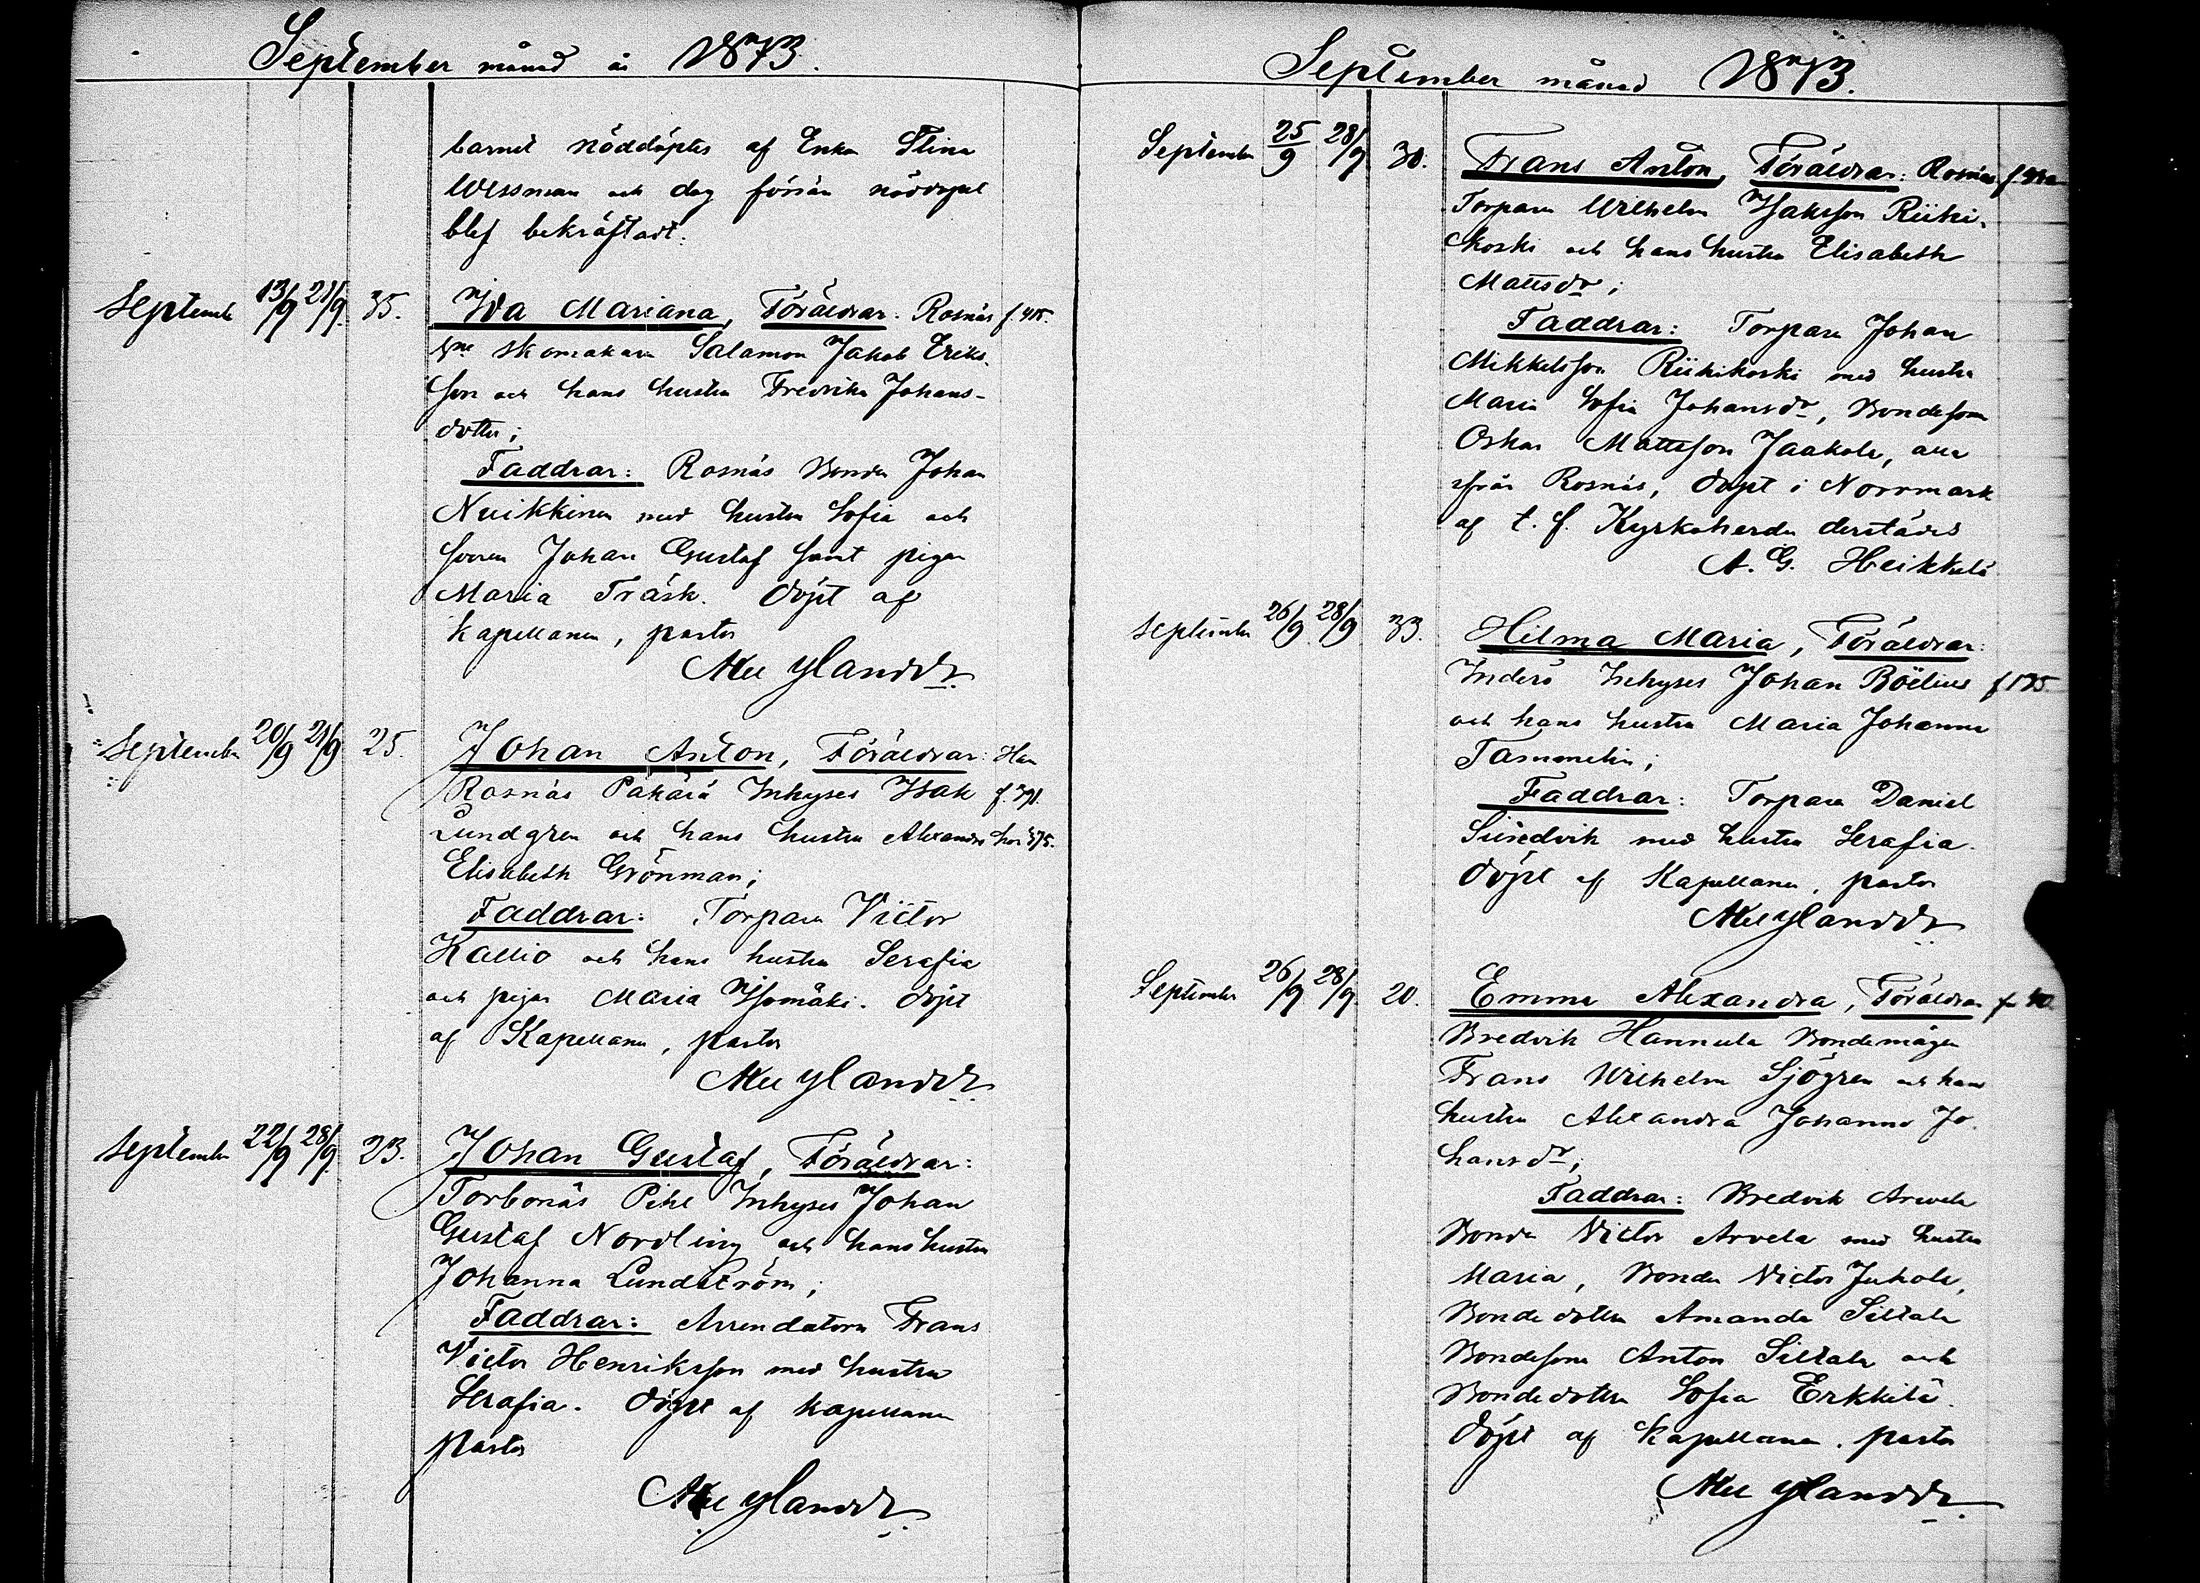 September månad år 1873.
barnet nöddöptes af Enkan Stina
Wissman och dog förrän nöddopet
blef bekräftadt.
September 13/9 21/9 35. Ida Mariana, Föräldrar: Rosnäs f. 415.
skomakaren Salamon Jakob Eriks-
son och hans hustru Fredrika Johans-
dotter;
Faddrar: Rosnäs Bonden Johan
Nuikkinen med hustru Sofia och
sonen Johan Gustaf samt pigan
Maria Träsk. Döpt af
Kapellanen, pastor
Nylander
September 20/9 21/9 25. Johan Anton, Föräldrar: Han
Rosnäs Päkärä Inhyses Isak f. 391.
Lundgren och hans hustru Alexandra hon 375.
Elisabeth Grönman;
Faddrar: Torparen Victor
Kallio och hans hustru Serafia
och pigan Maria Isomäki. Döpt
af Kapellanen, pastor
Nylander
September 22/9 28/9 23. Johan Gustaf, Föräldrar:
Torbonäs Pihl Inhyses Johan
Gustaf Nordling och hans hustru
Johanna Lundström;
Faddrar: Arrendatorn Frans
Victor Henriksson med hustru
Serafia. Döpt af Kapellanen
pastor
Nylander
September månad 1873.
September 25/9 28/9 30. Frans Anton, Föräldrar: Rosnäs
Torparen Wilhelm Isaksson Riiki-
koski och hans hustru Elisabeth
Mattsdr;
Faddrar: Torparen Johan
Mikkelsson Riikikoski med hustru
Maria Sofia Johansdr, Bondesonen
Oskar Mattsson Jaakola, alla
från Rosnäs, döpt i Norrmark
af t. f. Kyrkoherden derstädes
A. G. Heikkelä
September 26/9 28/9 33. Hilma Maria, Föräldrar:
Inderö Inhyses Johan Böelius f 135.
och hans hustru Maria Johanna
Tammelin;
Faddrar: Torparen Daniel
med hustru Serafia.
Döpt af Kapellanen, pastor
Nylander
September 26/9 28/9 20. Emma Alexandra, Föräldrar
Bredvik Hannula Bondemågen
Frans Wilhelm Sjögren och hans
hustru Alexandra Johanna Jo-
hansdr;
Faddrar: Bredvik Arvela
Bonden Victor Arvela med hustru
Maria, Bonden Victor Juhola,
Bondedottern Amanda Siltala
Bondesonen Anton Siltala och
Bondedottern Sofia Erkkilä.
Döpt af Kapellanen, pastor
Nylander